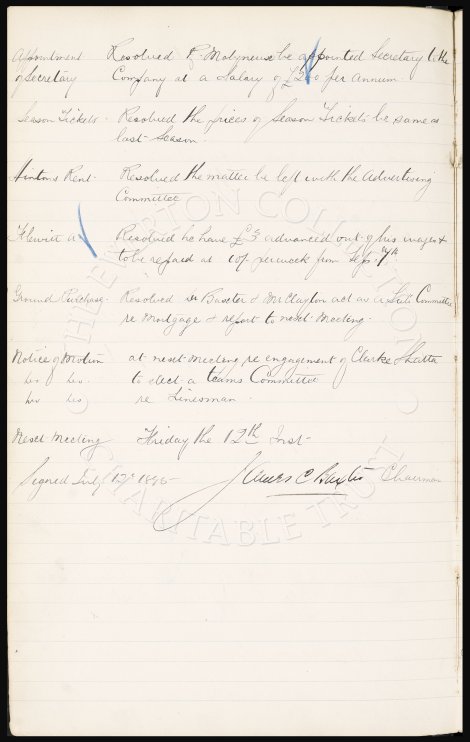 Appointment Resolved R. Molyneux be appointed Secretary to the
of Secretary Company at a Salary of £200 per Annum.
Season Tickets. Resolved the prices of Season Tickets be same as
last Season.
Hintons Rent. Resolved the matter be left with the Advertising
Committee
Hewitt Resolved he have £3 advanced out of his wages &
to be repaid at 10/ per week from Sep. 7th
Ground Purchase. Resolved Baxter & Mr Clayton act as a Sub Committee
re Mortgage & report to next Meeting.
Notice of Motion at next meeting re engagement of Clarke
Do Do. to elect a teams Committee
Do Do re Linesman.
Next Meeting Friday the 12th Inst-
Signed July 12 1895 James C Baxter Chairman
THE EVERTON COLLECTION
CHARITABLE TRUST